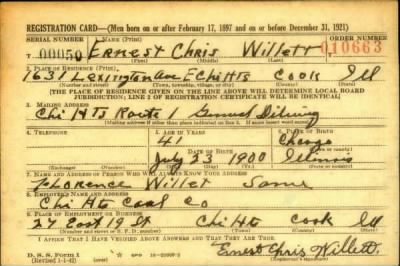 REGISTRATION CARD—(Men born on or after February 17, 1897 and on or before December 31, 1921)
SERIAL NUMBER 1. NAME (Print) ORDER NUMBER
U 00050 Ernest Chris Willett 010663
(First) (Middle) (Last)
2. PLACE OF RESIDENCE (Print)
1631 Lexington Ave E Chi Hts Cook Ill
(Number and street) (Town, township, village, or city) (County) (State)
[THE PLACE OF RESIDENCE GIVEN ON THE LINE ABOVE WILL DETERMINE LOCAL BOARD
JURISDICTION; LINE 2 OF REGISTRATION CERTIFICATE WILL BE IDENTICAL]
3. MAILING ADDRESS
Chi Hts Route General Delivery
[Mailing address if other than place indicated on line 2. If same insert word same]
4. TELEPHONE 5. AGE IN YEARS 6. PLACE OF BIRTH
41 Chicago
DATE OF BIRTH (Town or county)
July 23 1900 Illinois
(Exchange) (Number) (Mo.) (Day) (Yr.) (State or country)
7. NAME AND ADDRESS OF PERSON WHO WILL ALWAYS KNOW YOUR ADDRESS
Florence Willet Same
8. EMPLOYER'S NAME AND ADDRESS
Chi Hts Coal Co
9. PLACE OF EMPLOYMENT OR BUSINESS
27 East 19 St Chi Hts Cook Ill
(Number and street or R. F. D. number) (Town) (County) (State)
I AFFIRM THAT I HAVE VERIFIED ABOVE ANSWERS AND THAT THEY ARE TRUE.
D. S. S. Form 1
(Revised 1-1-42) GPO Ernest Chris Willett